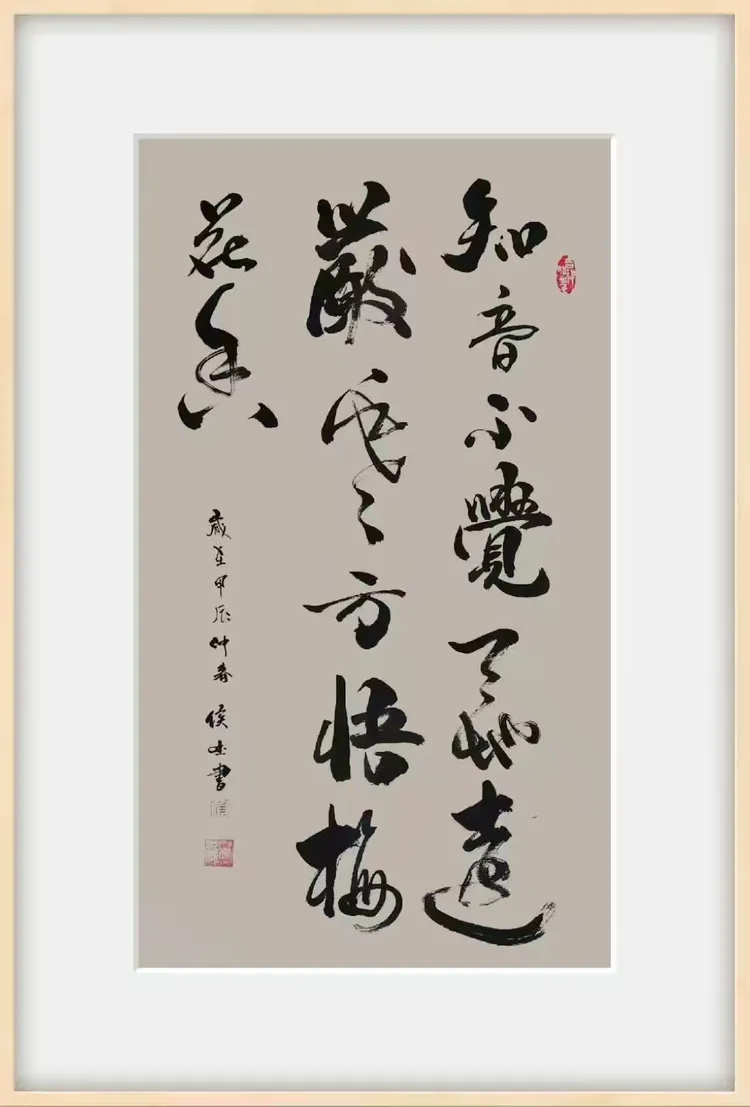 知音不覺天地遠
嚴冬方悟梅
花香
歲在甲辰仲春 侯 書